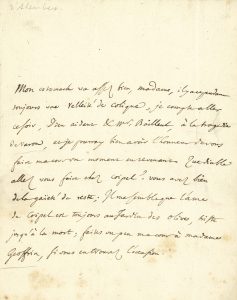 d'Alembert.
Mon estomach va assez bien, madame, il y a cependant
toujours une velléité de colique, je compte aller
ce soir, Dieu aidant & Mr. Bailleul à la tragedie
de varon et je pourray bien avoir l'honneur de vous
faire ma cour un moment en revenant. Que diable
allez vous faire chez Coipel? vous avez bien
de la gaieté de reste; Il me semble que l'ame
de Coipel est toujours au Jardin des olives, triste
jusqu'à la mort; faites un peu ma cour à madame
Geoffrin, si vous en trouvez l'occasion.